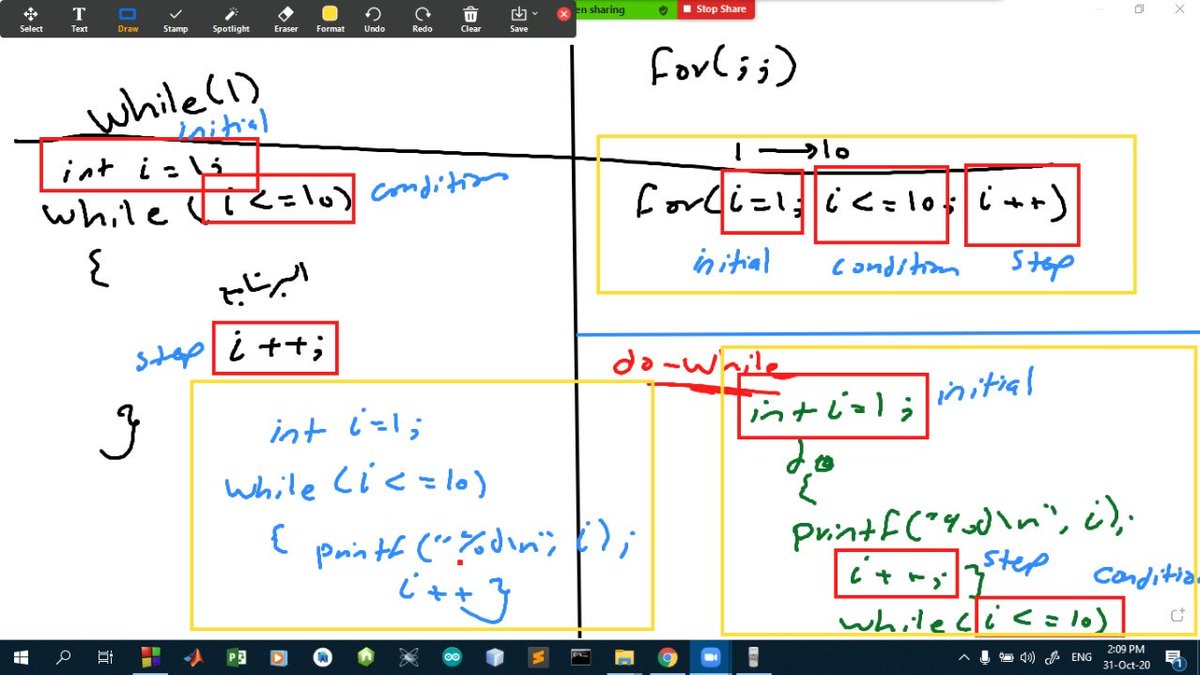 Select Text Draw Stamp Spotlight Eraser Format Undo Redo Clear Save
en sharing Stop Share
while(1)
initial
int i=1;
while (i<=10) condition
{
البرنامج
step i++;
}
int i=1;
while (i<=10)
{ printf("%d\n", i);
i++ }
for(;;)
1 → 10
for(i=1; i<=10; i++)
initial condition step
do-while
int i=1; initial
do
{
printf("%d\n", i);
i++; } step
conditio
while (i<=10)
ENG
2:09 PM
31-Oct-20
1